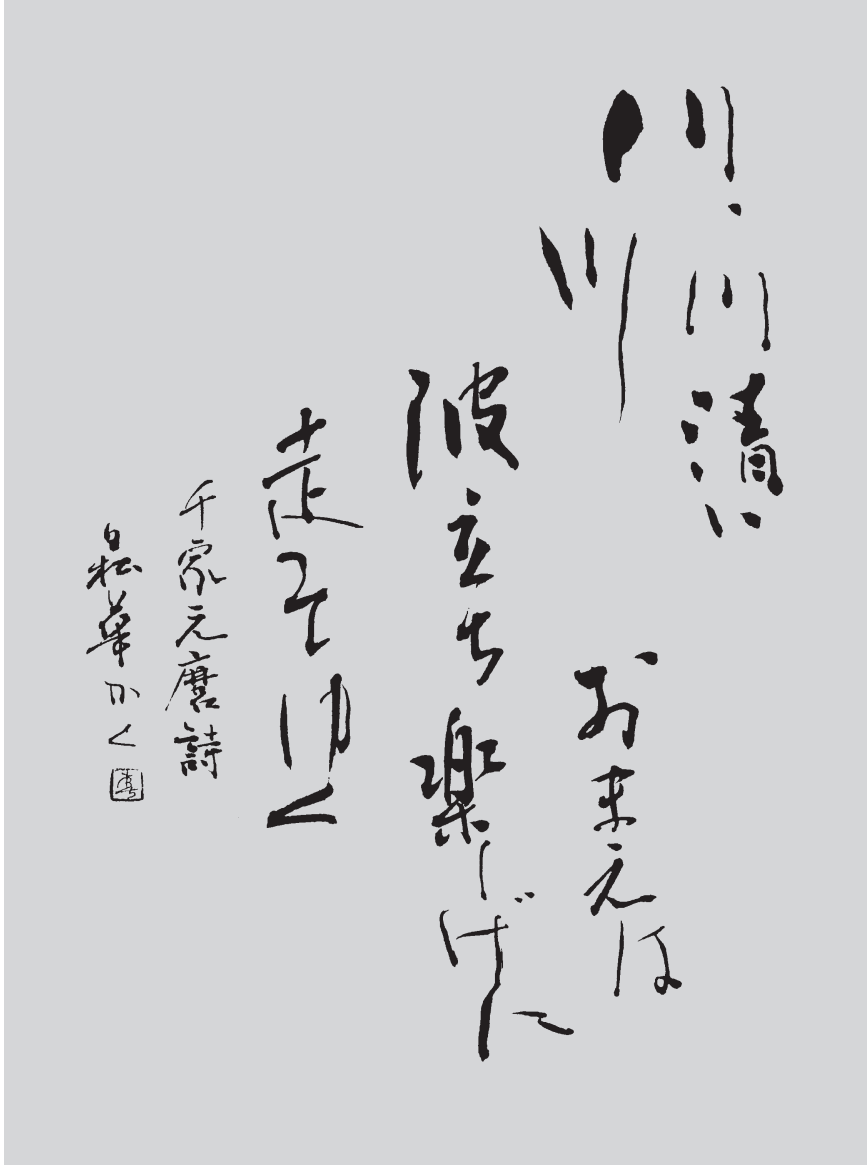 川、川清い
川おまえは
波立ち楽しげに
走つてゆく
千家元麿詩
華かく